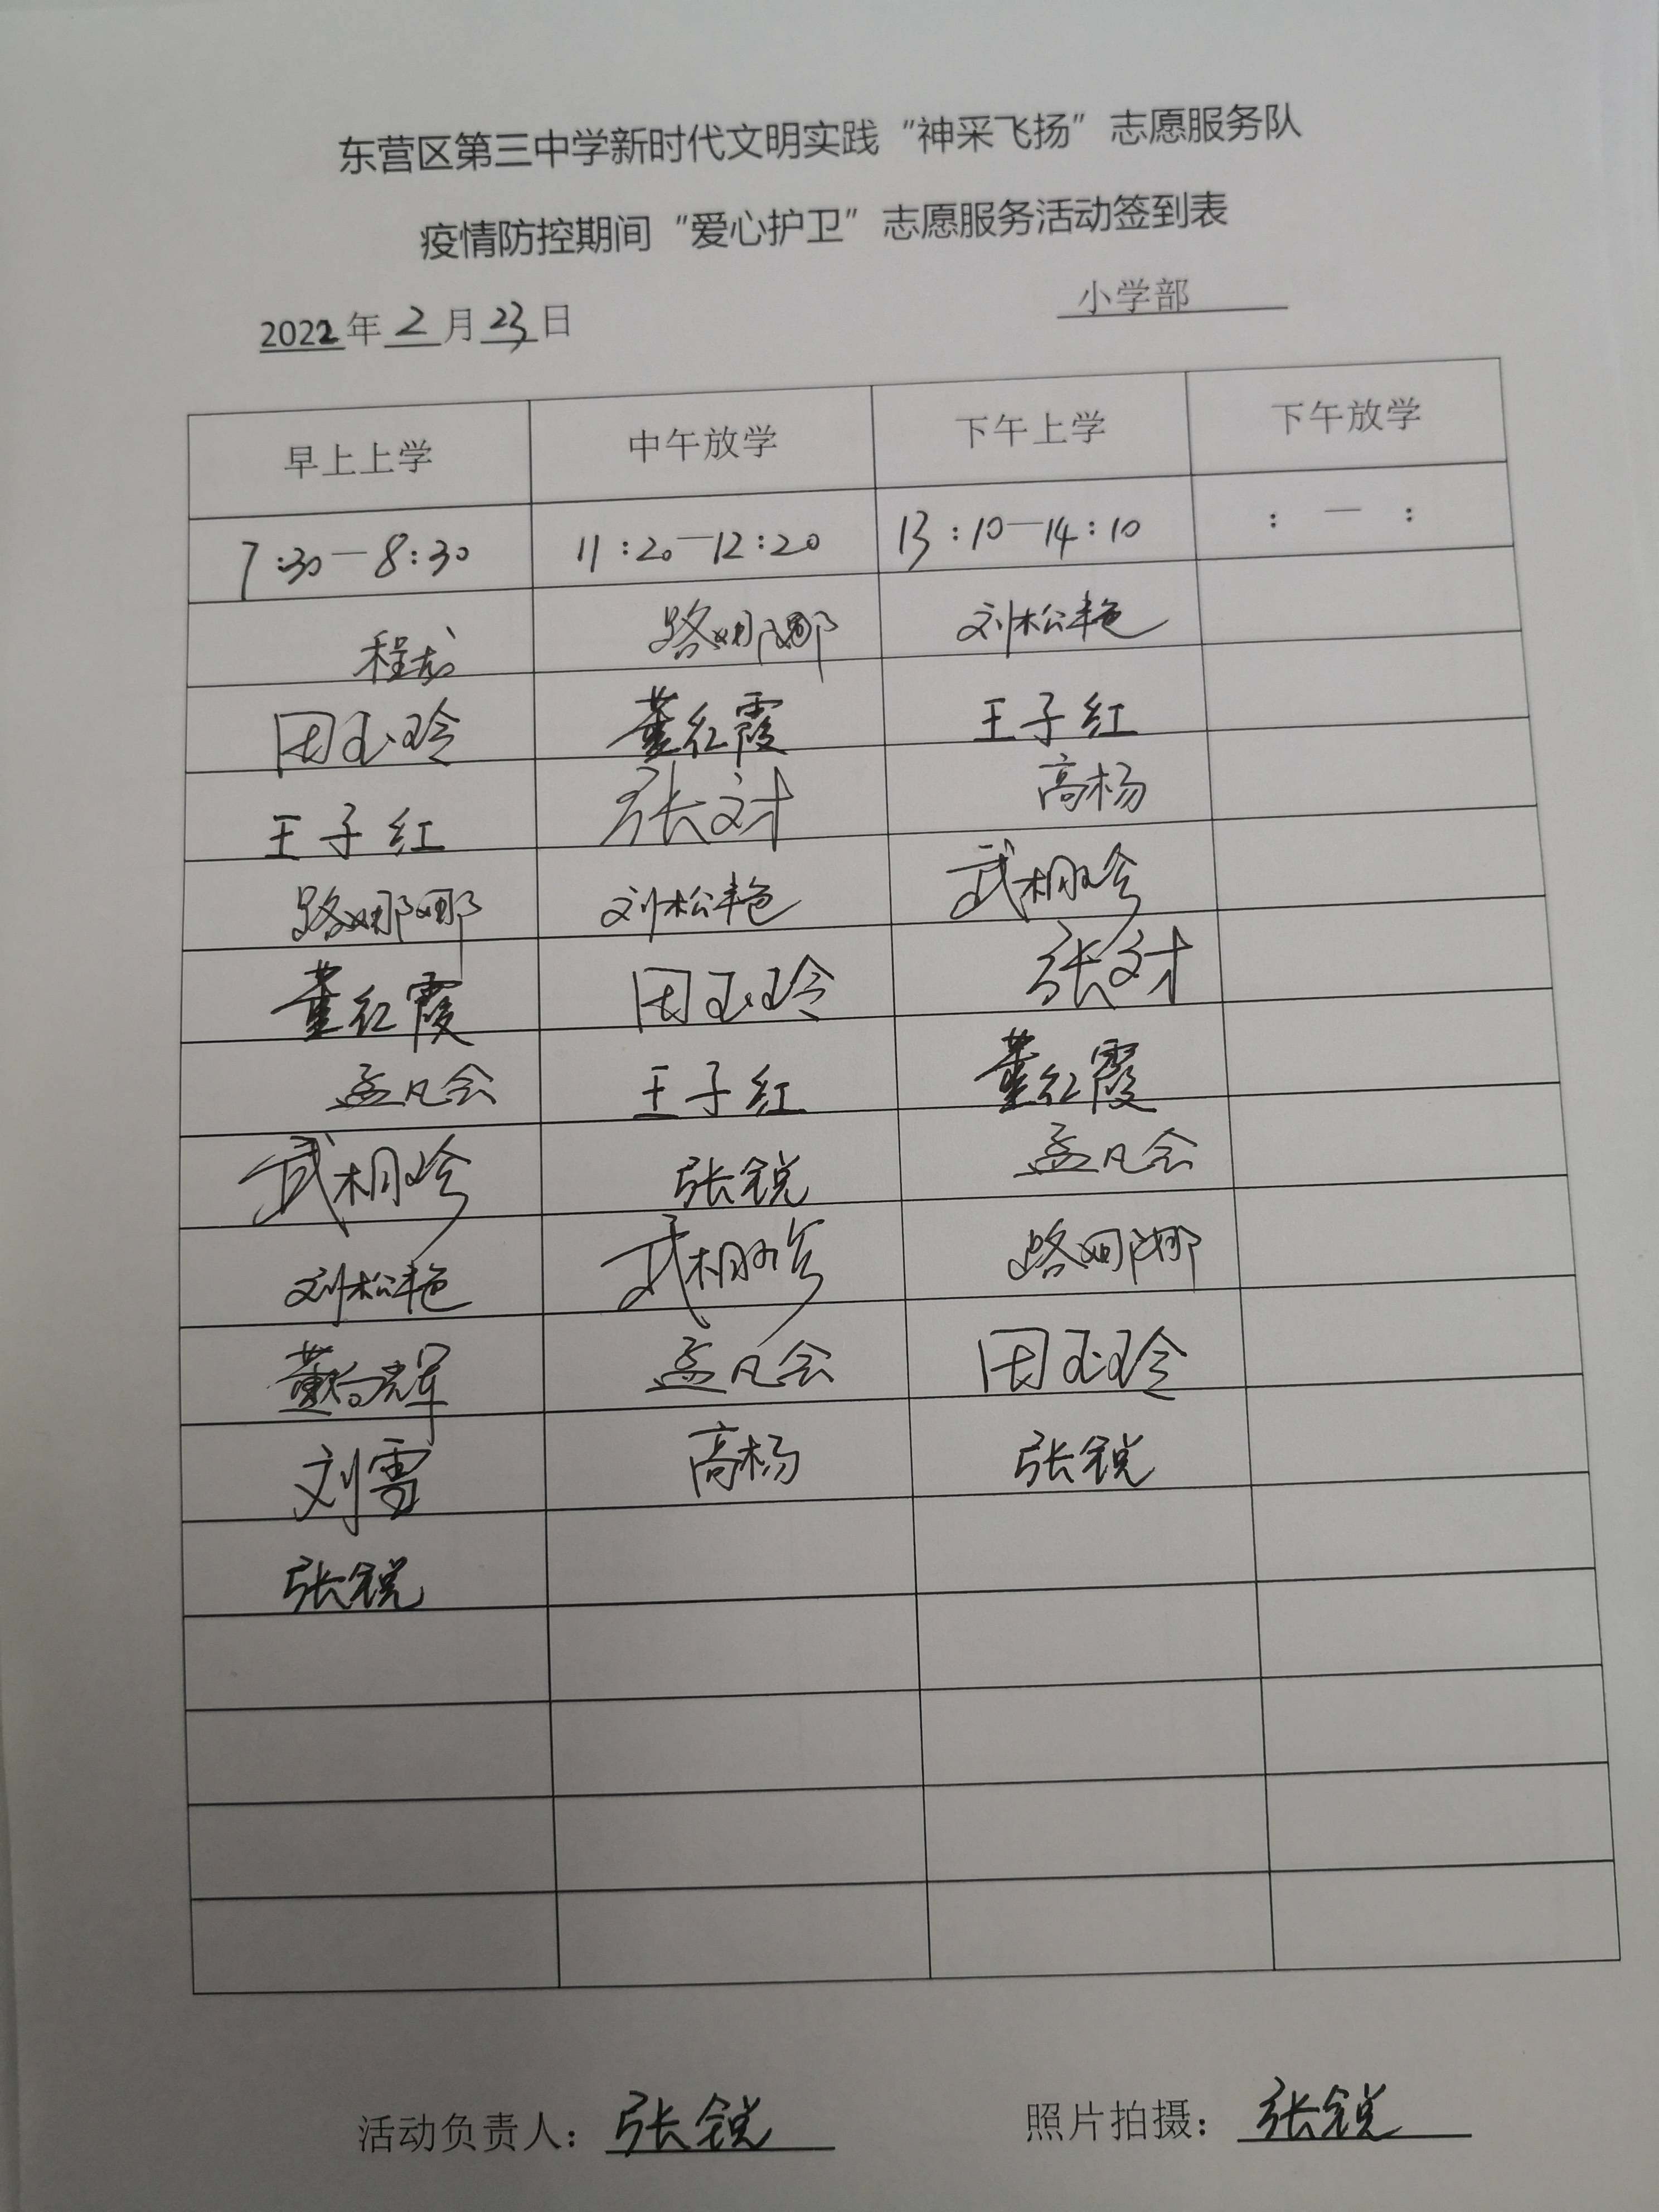 东营区第三中学新时代文明实践“神采飞扬”志愿服务队
疫情防控期间“爱心护卫”志愿服务活动签到表
2022年2月23日 小学部
早上上学 中午放学 下午上学 下午放学
7:30—8:30 11:20—12:20 13:10—14:10 : — :
程龙 路娜娜 刘松艳
田玉玲 董红霞 王子红
王子红 张对 高杨
路娜娜 刘松艳 武相玲
董红霞 田玉玲 张对
孟凡会 王子红 董红霞
武相玲 张锐 孟凡会
刘松艳 武相玲 路娜娜
董 孟凡会 田玉玲
刘雪 高杨 张锐
张锐
活动负责人：张锐 照片拍摄：张锐